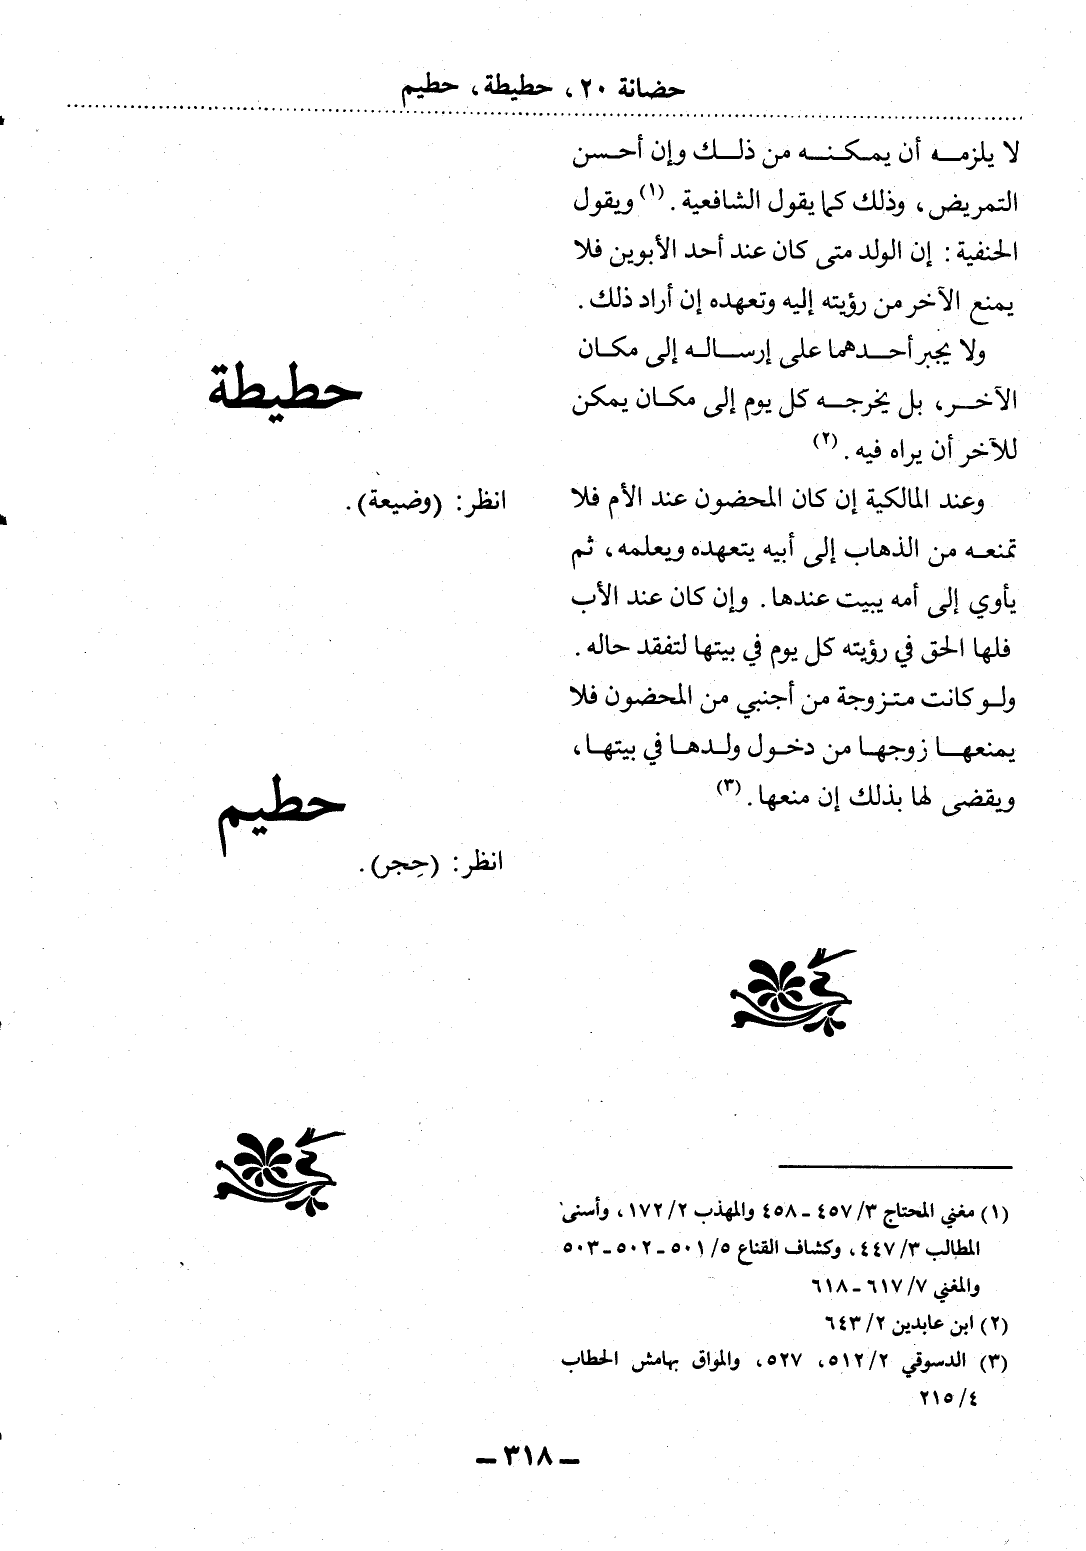 حضانة ٢٠، حطيطة، حطيم
لا يلزمه أن يمكنه من ذلك وإن أحسن
التمريض، وذلك كما يقول الشافعية. (١) ويقول
الحنفية: إن الولد متى كان عند أحد الأبوين فلا
يمنع الآخر من رؤيته إليه وتعهده إن أراد ذلك.
ولا يجبر أحدهما على إرساله إلى مكان
الآخر، بل يخرجه كل يوم إلى مكان يمكن
للآخر أن يراه فيه. (٢)
وعند المالكية إن كان المحضون عند الأم فلا
تمنعه من الذهاب إلى أبيه يتعهده ويعلمه، ثم
يأوي إلى أمه يبيت عندها. وإن كان عند الأب
فلها الحق في رؤيته كل يوم في بيتها لتفقد حاله.
ولو كانت متزوجة من أجنبي من المحضون فلا
يمنعها زوجها من دخول ولدها في بيتها،
ويقضى لها بذلك إن منعها. (٣)
(١) مغني المحتاج ٣/ ٤٥٧ ـ ٤٥٨ والمهذب ٢/ ١٧٢، وأسنى
المطالب ٣/ ٤٤٧، وكشاف القناع ٥/ ٥٠١ ـ ٥٠٢ ـ ٥٠٣
والمغني ٧/ ٦١٧ ـ ٦١٨
(٢) ابن عابدين ٢/ ٦٤٣
(٣) الدسوقي ٢/ ٥١٢، ٥٢٧، والمواق بهامش الحطاب
٤/ ٢١٥
حطيطة
انظر: (وضيعة).
حطيم
انظر: (حِجر).
ـ ٣١٨ ـ